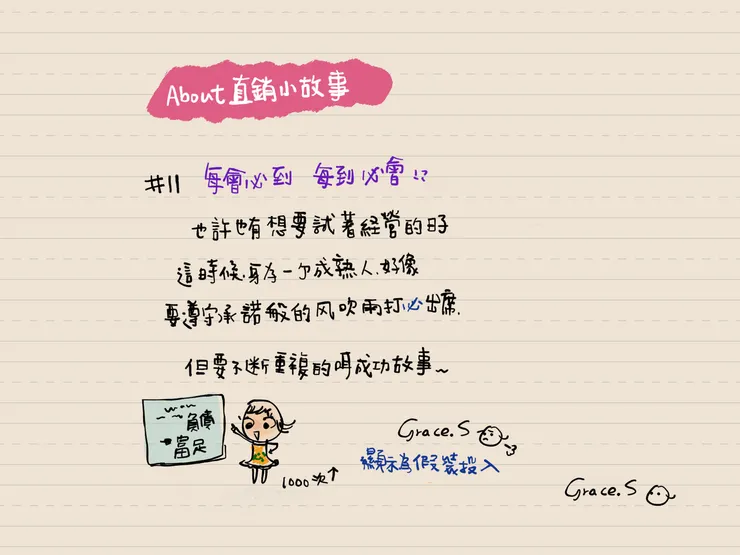 About直銷小故事
#11 每會必到 每到必會!?
也許也有想要試著經營的日子
這時候,身為一个成熟人,好像
要遵守承諾般的风吹雨打必出席,
但要不断重複的听成功故事~
won
負債
富足
1000次↑
Grace.S
顯示為假裝投入
Grace.S